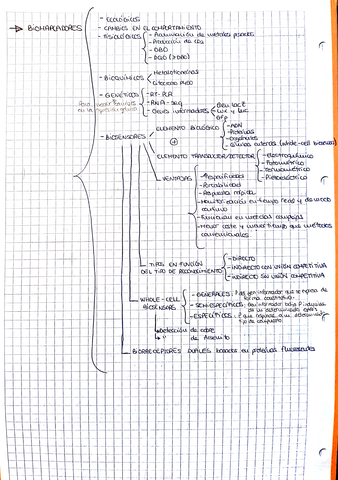 → BIOMARCADORES
- ECOLÓGICOS
- CAMBIOS EN EL COMPORTAMIENTO
- FISIOLÓGICOS
- Acumulación de metales pesados
- Producción de CO2
- DBO
- DQO (>DBO)
- BIOQUÍMICOS
- Metalotioneínas
- Citocromo P450
- GENÉTICOS
- RT-PCR
- RNA-seq
- Genes informadores
- Gen lac Z
- Luc y lux
- GFP
- BIOSENSORES
ELEMENTO BIOLÓGICO
- ADN
- Proteínas
- Orgánulos
- Células enteras (whole-cell biosensors)
+
ELEMENTO TRANSDUCTOR/DETECTOR
- Electroquímico
- Fotométrico
- Termométrico
- Piezoeléctrico
VENTAJAS
- Especificidad
- Portabilidad
- Respuesta rápida
- Monitorización en tiempo real y de modo continuo
- Funcionan en muestras complejas
- Menor coste y menor tiempo que métodos
convencionales
TIPOS EN FUNCIÓN
DEL TIPO DE RECONOCIMIENTO
- DIRECTO
- INDIRECTO CON UNIÓN COMPETITIVA
- INDIRECTO SIN UNIÓN COMPETITIVA
WHOLE-CELL
BIOSENSORS
- GENERALES: gen informador que se expresa de
forma constitutiva
- SEMI-ESPECÍFICOS: Gen informador bajo P inducible
de un determinado estrés
- ESPECÍFICOS: P que responde a un determinado
tipo de compuesto
Detección de cobre
" de Arsenito
BIORRECEPTORES DUALES basados en proteínas fluorescentes